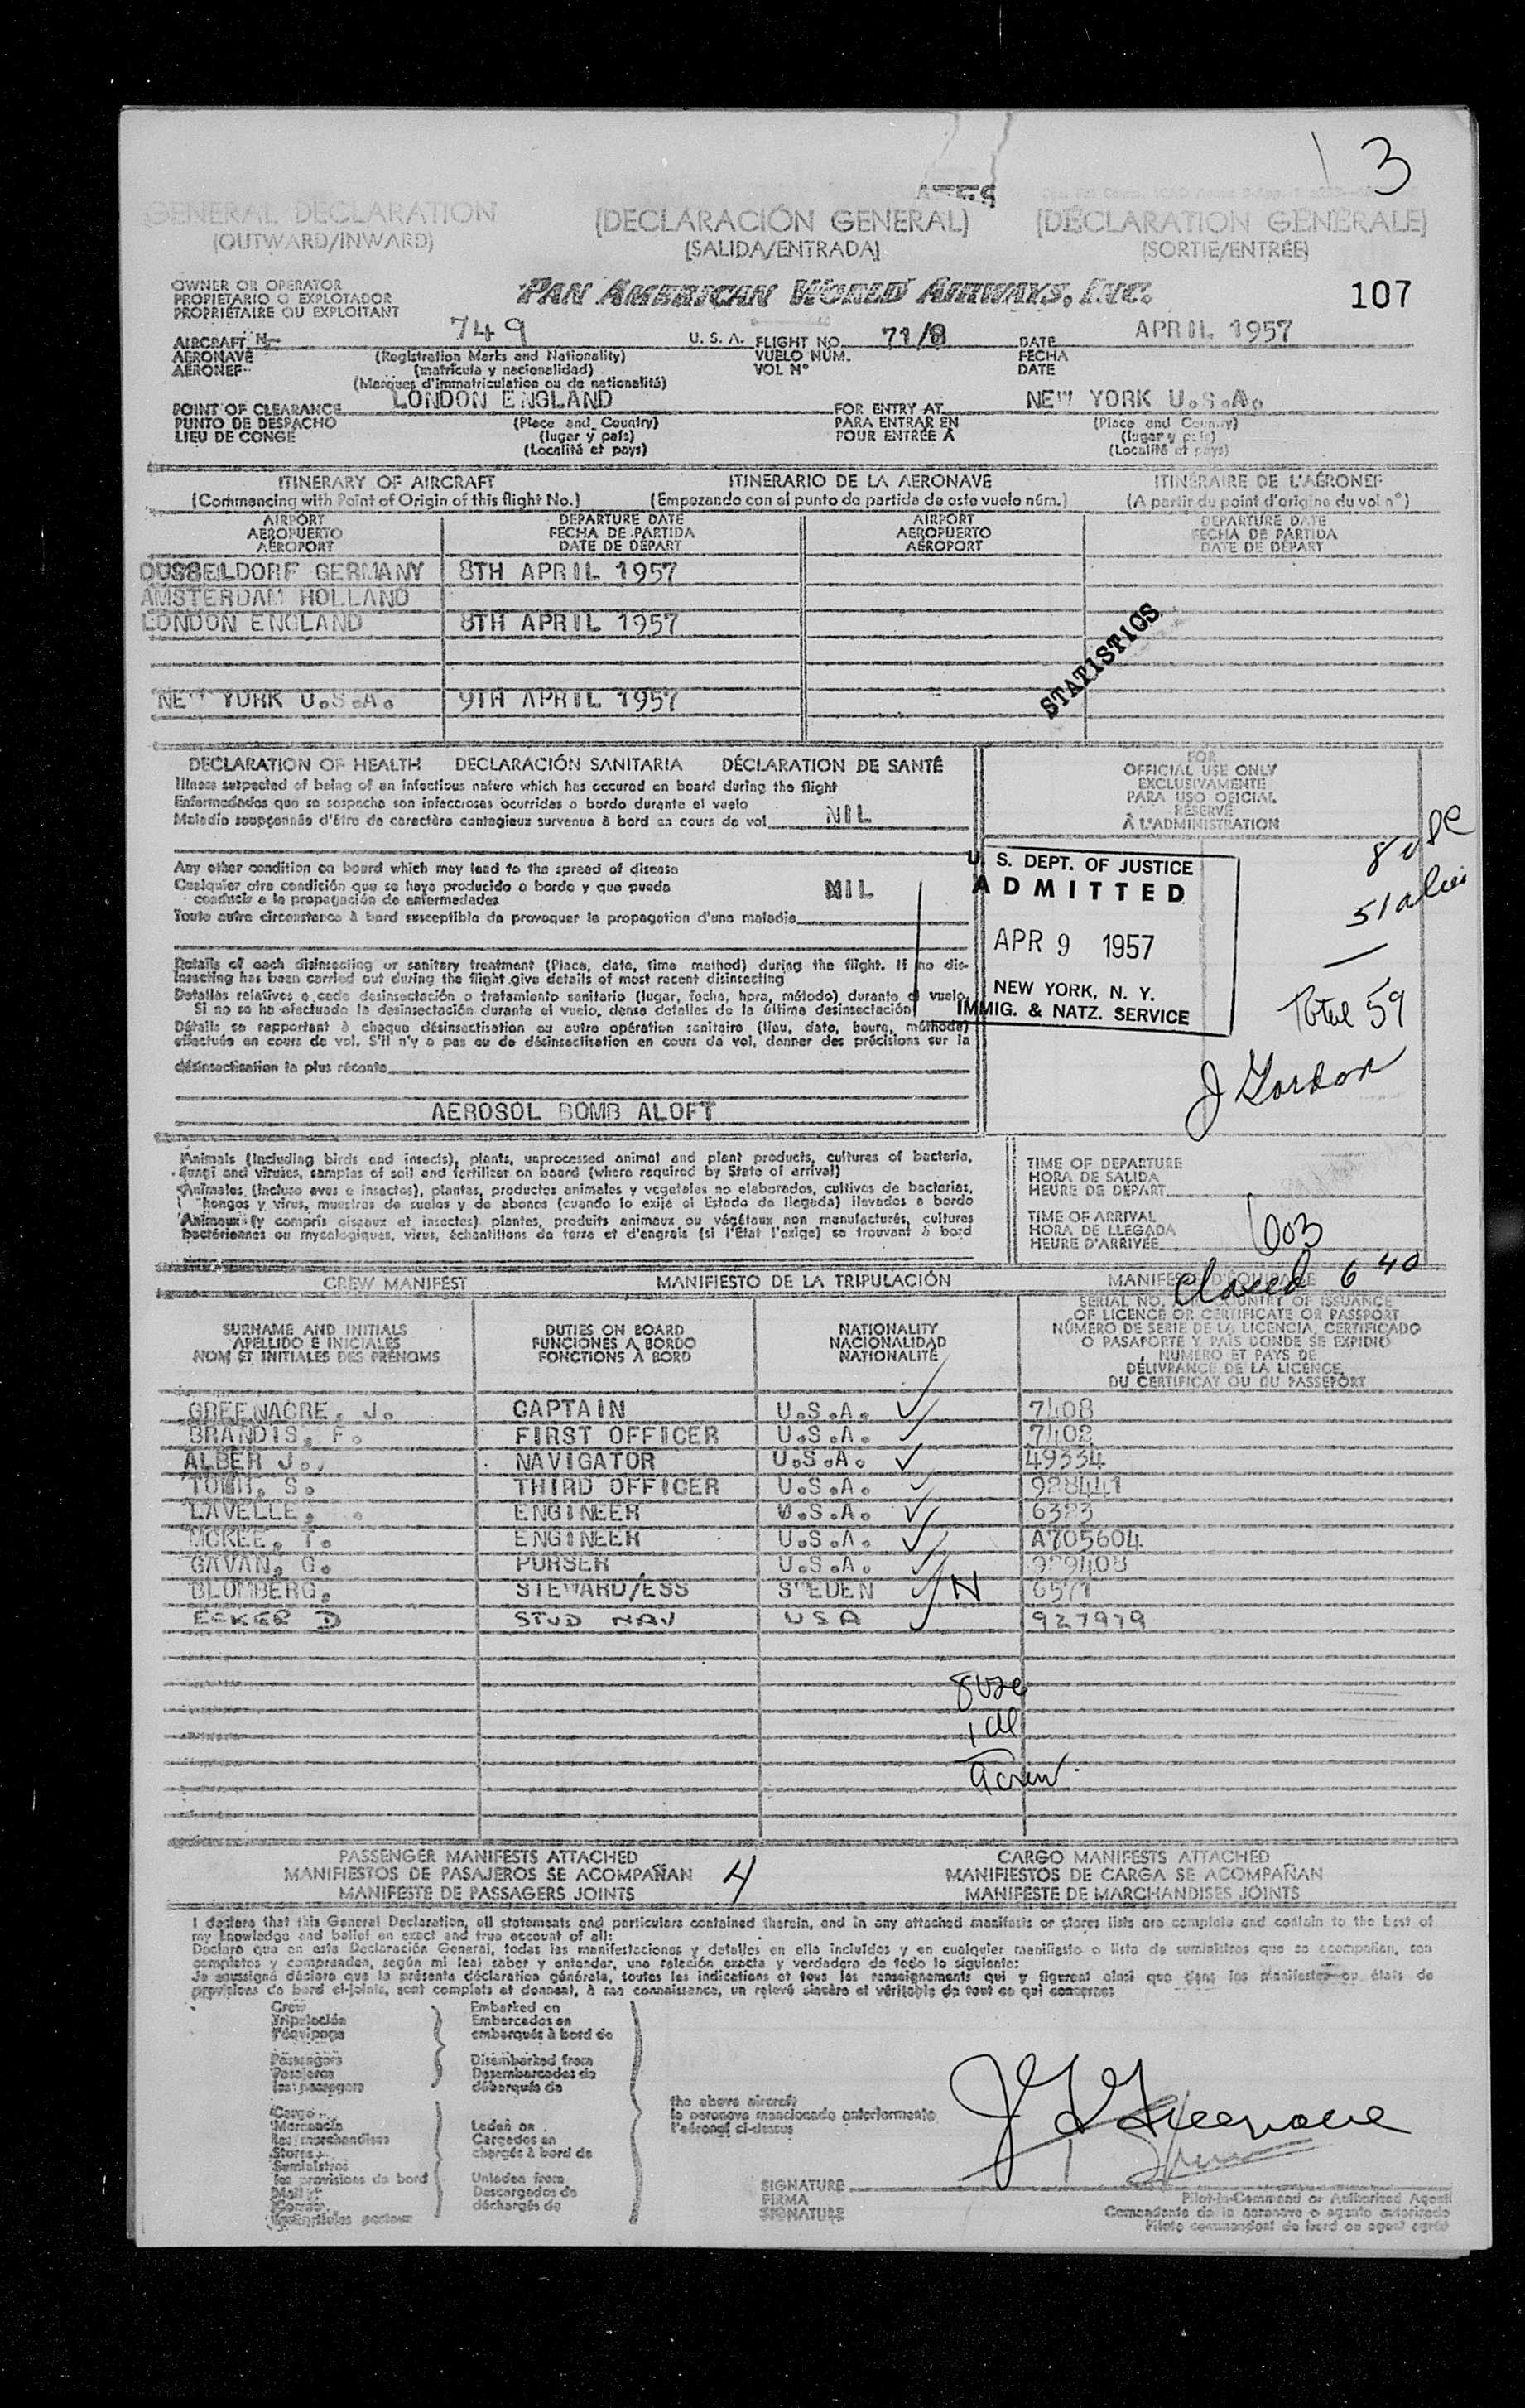 3
GENERAL DECLARATION (DECLARACIÓN GENERAL) (DÉCLARATION GÉNÉRALE)
(OUTWARD/INWARD) (SALIDA/ENTRADA) (SORTIE/ENTRÉE)
OWNER OR OPERATOR
PROPIETARIO O EXPLOTADOR
PROPRIÉTAIRE OU EXPLOITANT
PAN AMERICAN WORLD AIRWAYS, INC. 107
AIRCRAFT N- 749 U.S.A. FLIGHT NO. 71/8 DATE APRIL 1957
AERONAVE (Registration Marks and Nationality) VUELO NÚM. FECHA
AÉRONEF (matrícula y nacionalidad) VOL Nº DATE
(Marques d'immatriculation ou de nationalité)
POINT OF CLEARANCE LONDON ENGLAND FOR ENTRY AT NEW YORK U.S.A.
PUNTO DE DESPACHO (Place and Country) PARA ENTRAR EN (Place and Country)
LIEU DE CONGÉ (lugar y país) POUR ENTRÉE À (lugar y país)
(Localité et pays) (Localité et pays)
ITINERARY OF AIRCRAFT ITINERARIO DE LA AERONAVE ITINÉRAIRE DE L'AÉRONEF
(Commencing with Point of Origin of this flight No.) (Empezando con el punto de partida de este vuelo núm.) (A partir du point d'origine du vol nº)
AIRPORT DEPARTURE DATE AIRPORT DEPARTURE DATE
AEROPUERTO FECHA DE PARTIDA AEROPUERTO FECHA DE PARTIDA
AÉROPORT DATE DE DÉPART AÉROPORT DATE DE DÉPART
DUSSELDORF GERMANY 8TH APRIL 1957
AMSTERDAM HOLLAND
LONDON ENGLAND 8TH APRIL 1957
STATISTICS
NEW YORK U.S.A. 9TH APRIL 1957
DECLARATION OF HEALTH DECLARACIÓN SANITARIA DÉCLARATION DE SANTÉ
Illness suspected of being of an infectious nature which has occured on board during the flight
Enfermedades que se sospecha son infecciosas ocurridas a bordo durante el vuelo
Maladie soupçonnée d'être de caractère contagieux survenue à bord en cours de vol NIL
FOR
OFFICIAL USE ONLY
EXCLUSIVAMENTE
PARA USO OFICIAL
RÉSERVÉ
À L'ADMINISTRATION
Any other condition on board which may lead to the spread of disease
Cualquier otra condición que se haya producido a bordo y que pueda
conducir a la propagación de enfermedades NIL
Toute autre circonstance à bord susceptible de provoquer la propagation d'une maladie
U. S. DEPT. OF JUSTICE
ADMITTED
APR 9 1957
NEW YORK, N. Y.
IMMIG. & NATZ. SERVICE
51
Total 59
J Gordon
Details of each disinsecting or sanitary treatment (Place, date, time method) during the flight. If no dis-
insecting has been carried out during the flight give details of most recent disinsecting
Detalles relativos a cada desinsectación o tratamiento sanitario (lugar, fecha, hora, método) durante el vuelo.
Si no se ha efectuado la desinsectación durante el vuelo, dense detalles de la última desinsectación
Détails se rapportant à chaque désinsectisation ou autre opération sanitaire (lieu, date, heure, méthode)
effectuée en cours de vol. S'il n'y a pas eu de désinsectisation en cours de vol, donner des précisions sur la
désinsectisation la plus récente
AEROSOL BOMB ALOFT
Animals (including birds and insects), plants, unprocessed animal and plant products, cultures of bacteria,
fungi and viruses, samples of soil and fertilizer on board (where required by State of arrival)
Animales (incluso aves e insectos), plantas, productos animales y vegetales no elaborados, cultivos de bacterias,
hongos y virus, muestras de suelos y de abonos (cuando lo exija el Estado de llegada) llevados a bordo
Animaux (y compris oiseaux et insectes) plantes, produits animaux ou végétaux non manufacturés, cultures
bactériennes ou mycologiques, virus, échantillons de terre et d'engrais (si l'État l'exige) se trouvant à bord
TIME OF DEPARTURE
HORA DE SALIDA
HEURE DE DÉPART
TIME OF ARRIVAL
HORA DE LLEGADA
HEURE D'ARRIVÉE 603
closed 6 40
CREW MANIFEST MANIFIESTO DE LA TRIPULACIÓN MANIFESTE D'ÉQUIPAGE
SURNAME AND INITIALS DUTIES ON BOARD NATIONALITY
APELLIDO E INICIALES FUNCIONES A BORDO NACIONALIDAD
NOM ET INITIALES DES PRÉNOMS FONCTIONS À BORD NATIONALITÉ
SERIAL NO. AND COUNTRY OF ISSUANCE
OF LICENCE OR CERTIFICATE OR PASSPORT
NÚMERO DE SERIE DE LA LICENCIA, CERTIFICADO
O PASAPORTE Y PAÍS DONDE SE EXPIDIÓ
NUMÉRO ET PAYS DE
DÉLIVRANCE DE LA LICENCE,
DU CERTIFICAT OU DU PASSEPORT
GREENACRE, J. CAPTAIN U.S.A. 7408
BRANDIS, F. FIRST OFFICER U.S.A. 7402
ALBER J. NAVIGATOR U.S.A. 49334
S. THIRD OFFICER U.S.A. 928441
LAVELLE, ENGINEER U.S.A. 6323
MCKEE, T. ENGINEER U.S.A. A705604
GAVAN, G. PURSER U.S.A. 929408
BLOMBERG, STEWARD/ESS SWEDEN N 6571
ECKER D STUD NAV USA 927979
8 USC
1 al
9 crew
PASSENGER MANIFESTS ATTACHED CARGO MANIFESTS ATTACHED
MANIFIESTOS DE PASAJEROS SE ACOMPAÑAN 4 MANIFIESTOS DE CARGA SE ACOMPAÑAN
MANIFESTE DE PASSAGERS JOINTS MANIFESTE DE MARCHANDISES JOINTS
I declare that this General Declaration, all statements and particulars contained therein, and in any attached manifests or stores lists are complete and contain to the best of
my knowledge and belief an exact and true account of all:
Declaro que en esta Declaración General, todas las manifestaciones y detalles en ella incluidos y en cualquier manifiesto o lista de suministros que se acompañan, son
completos y comprenden, según mi leal saber y entender, una relación exacta y verdadera de todo lo siguiente:
Je soussigné déclare que la présente déclaration générale, toutes les indications et tous les renseignements qui y figurent ainsi que dans les manifestes ou états de
provisions de bord ci-joints, sont complets et donnent, à ma connaissance, un relevé sincère et véritable de tout ce qui concerne:
Crew Embarked on
Tripulación Embarcados en
l'équipage embarqués à bord de
Passengers Disembarked from
Pasajeros Desembarcados de
les passagers débarqués de
the above aircraft
la aeronave mencionada anteriormente
l'aéronef ci-dessus
Cargo
Mercancía Laden on
les marchandises Cargados en
Stores chargés à bord de
Suministros
les provisions de bord Unladen from
Mail Descargados de
Correo déchargés de
J L Greenacre
SIGNATURE
FIRMA
SIGNATURE
Pilot-in-Command or Authorized Agent
Comandante de la aeronave o agente autorizado
Pilote commandant de bord ou agent agréé